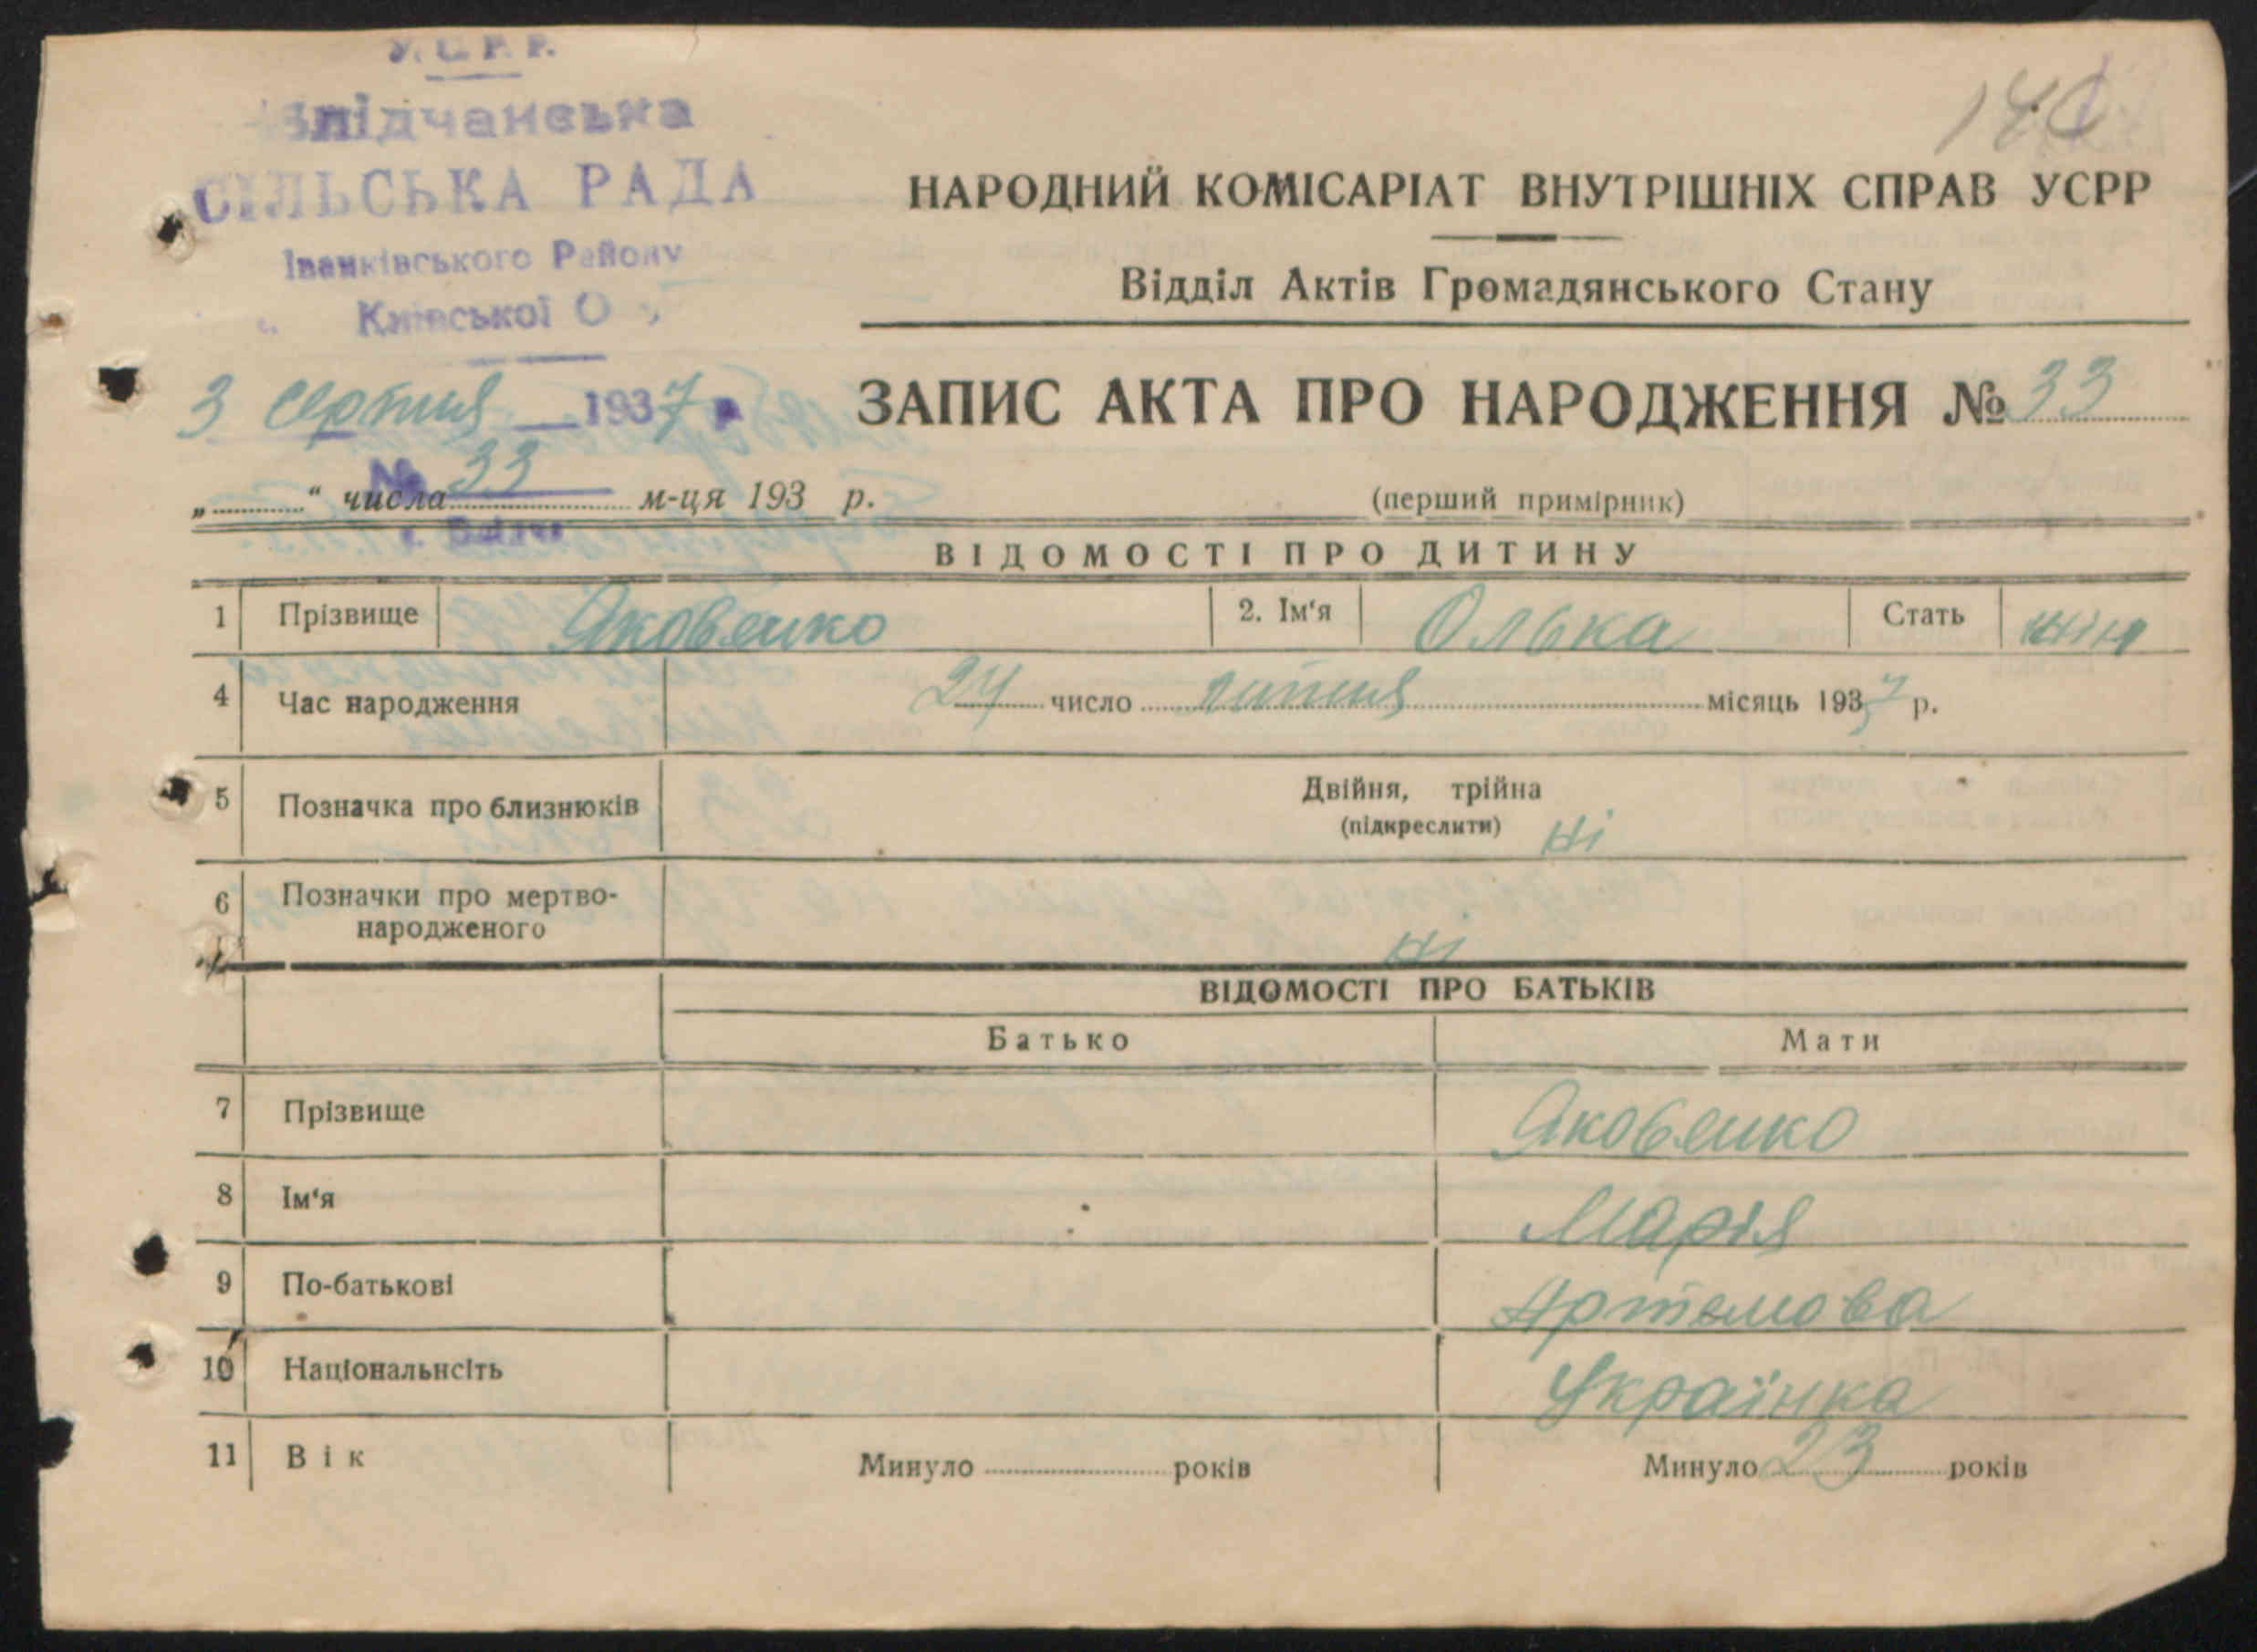 У. С. Р. Р.
Зпідчанська
СІЛЬСЬКА РАДА
Іванківського Району
Київської О
140
НАРОДНИЙ КОМІСАРІАТ ВНУТРІШНІХ СПРАВ УСРР
Відділ Актів Громадянського Стану
3 серпня 1937 р
ЗАПИС АКТА ПРО НАРОДЖЕННЯ № 33
№ 33
„ “ числа м-ця 193 р.
(перший примірник)
ВІДОМОСТІ ПРО ДИТИНУ
1 Прізвище Яковенко 2. Ім‘я Олька Стать жін
4 Час народження 24 число липня місяць 1937 р.
5 Позначка про близнюків Двійня, трійна
(підкреслити) Ні
6 Позначки про мертво-
народженого Ні
ВІДОМОСТІ ПРО БАТЬКІВ
Батько Мати
7 Прізвище Яковенко
8 Ім‘я Марія
9 По-батькові Артемова
10 Національнсіть Українка
11 Вік Минуло років Минуло 23 років